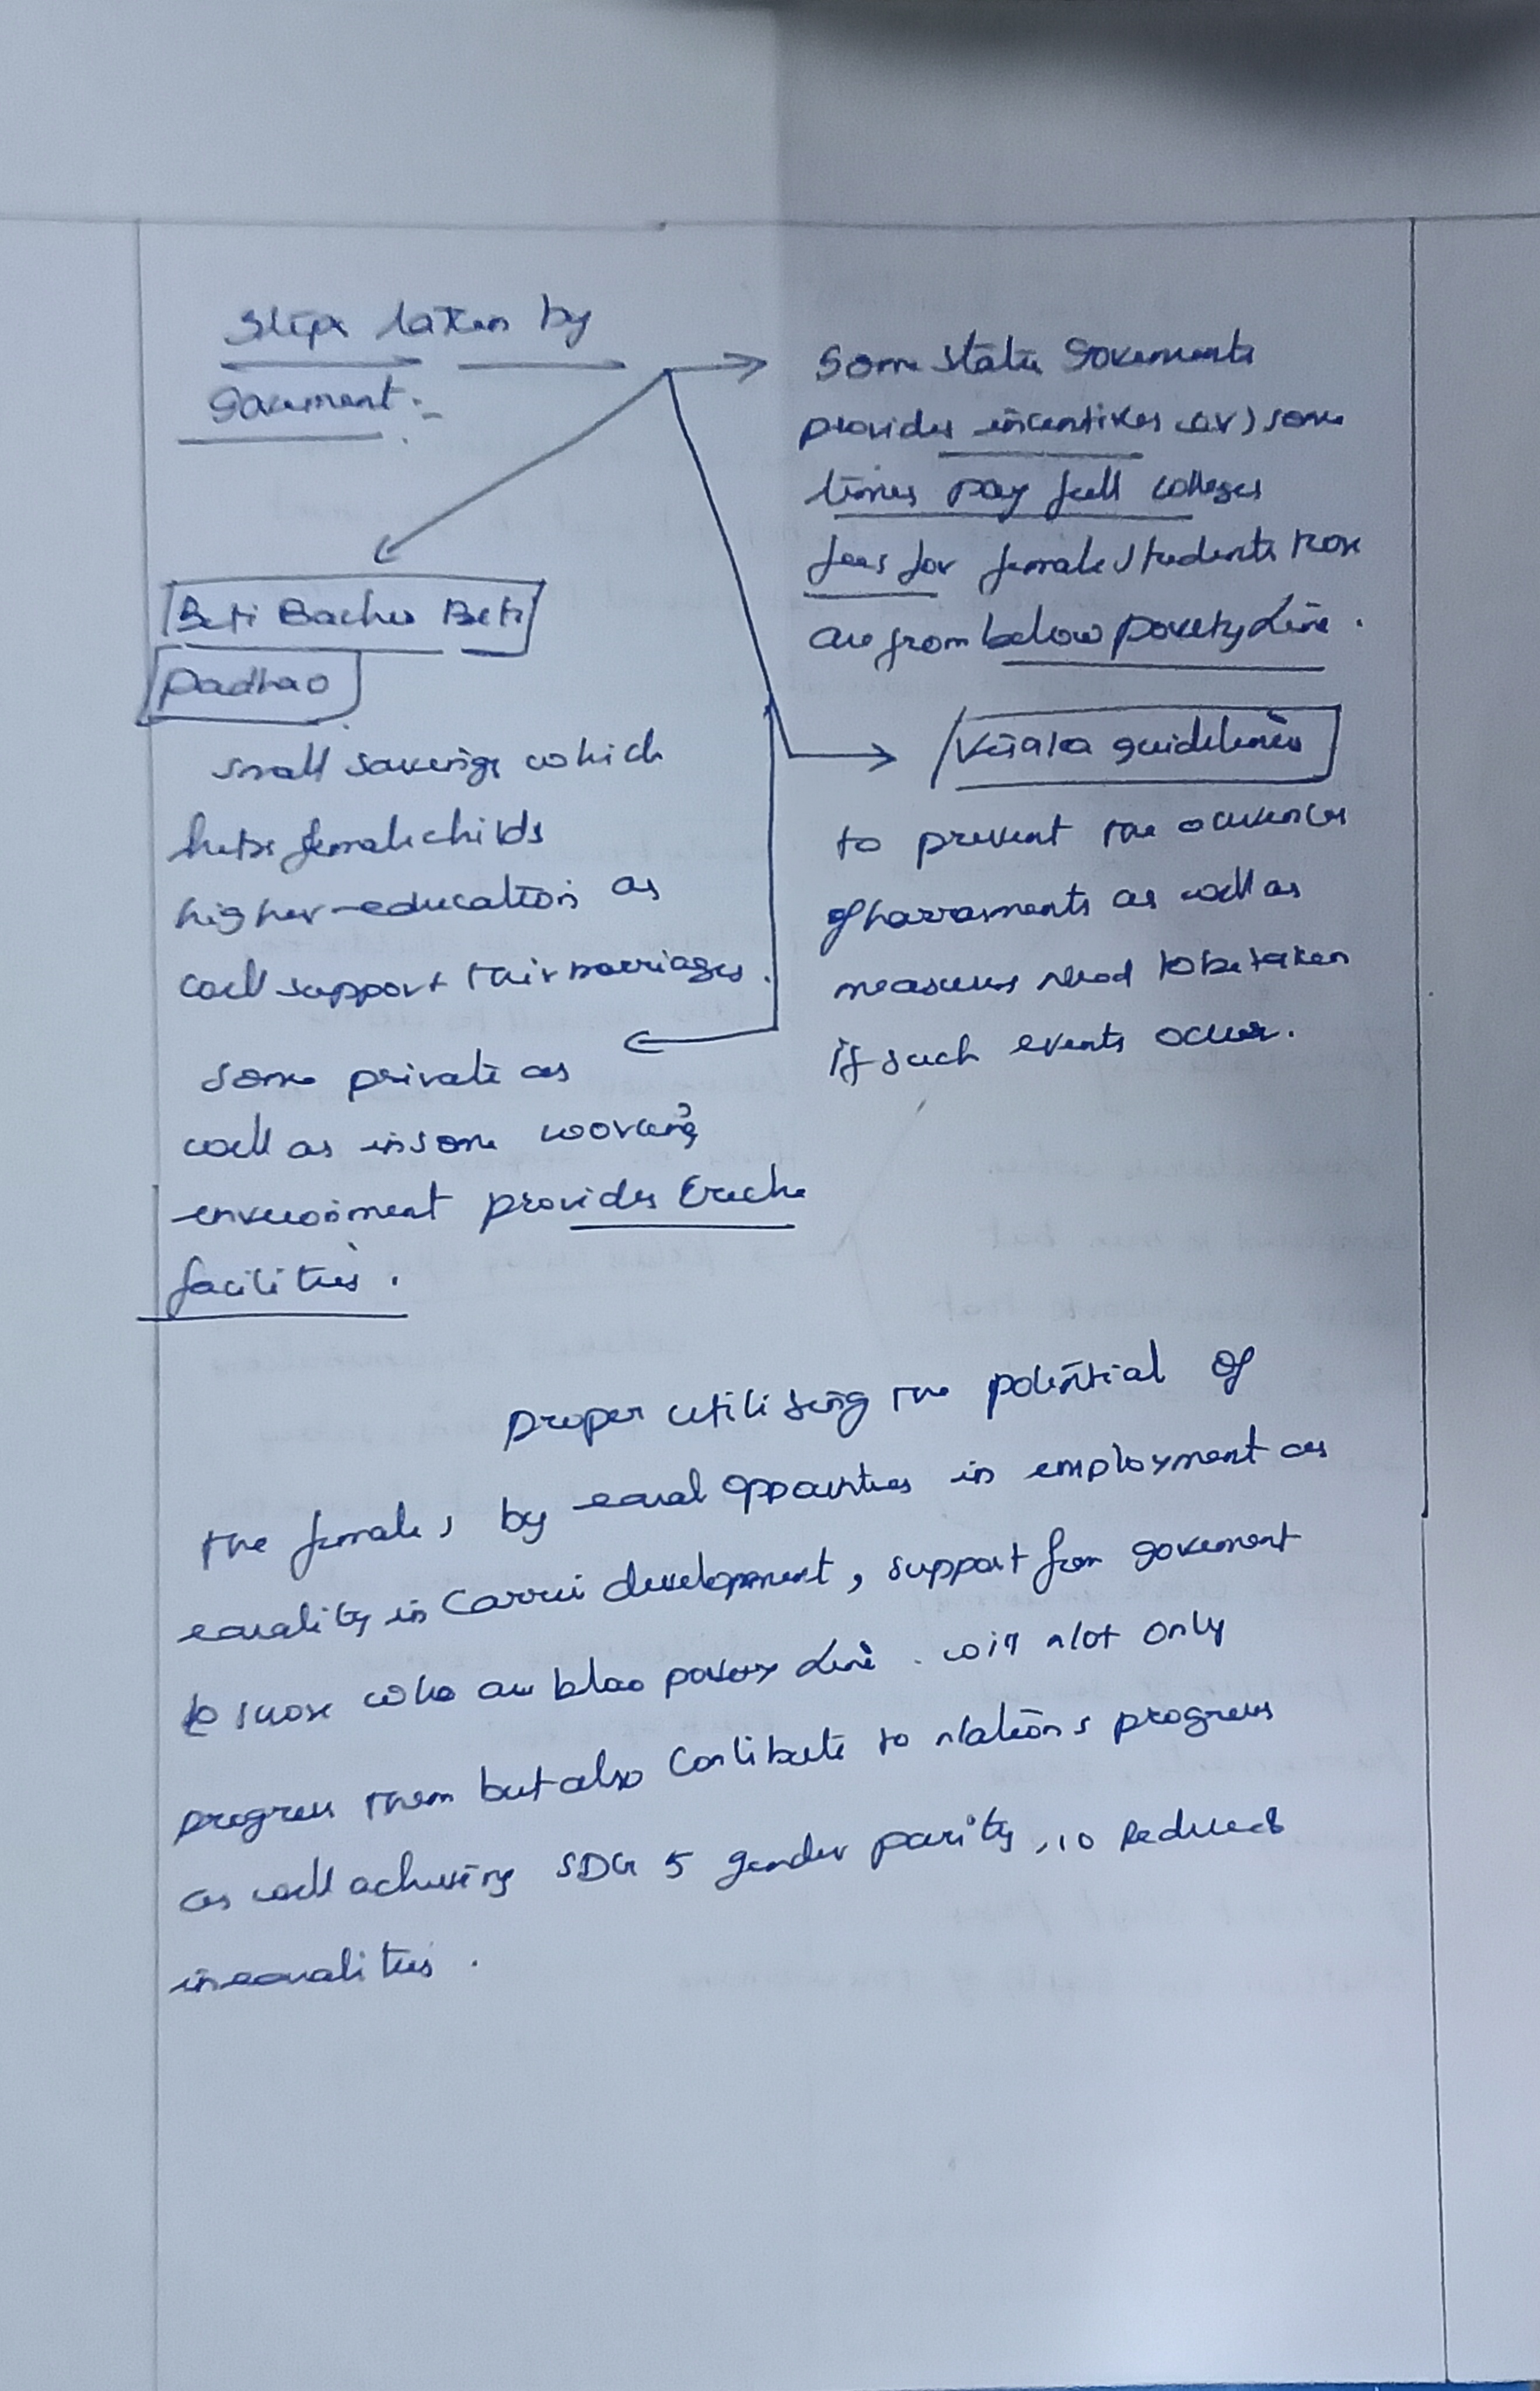 Steps taken by
Goverment :-
Some State Goverments
provides incentives (or) some
times pay full colleges
fees for female students those
are from below poverty Line .
Beti Bachao Beti
Padhao
small savings which
helps female childs
higher-education as
well support their marriages .
Visaka guidelines
to prevent the occurences
of harrasments as well as
measures need to be taken
if such events occur .
Some private as
well as in some working
enviroiment provides Creche
facilities .
Proper utilising the potential of
the females by equal oppourtities in employment as
equality in Carrer development , support from goverment
to those who are blao povery Line . will Not only
progress them but also Contibute to Nation s progress
as well achieving SDG 5 gender parity , 10 Reduced
inequalities .